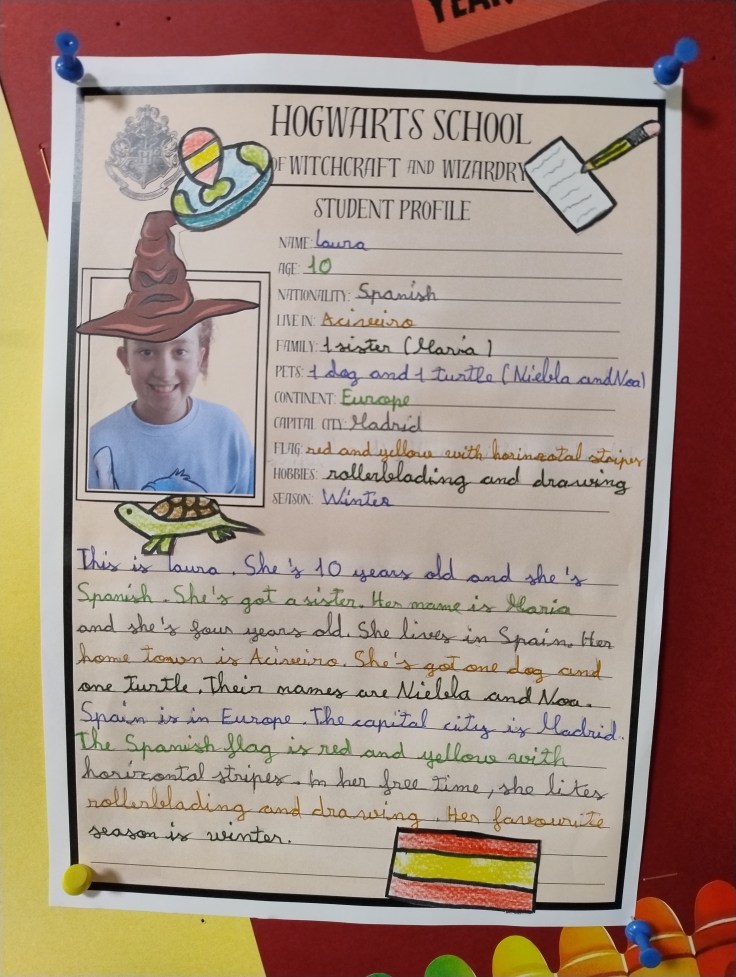 YEAR
HOGWARTS SCHOOL
OF WITCHCRAFT AND WIZARDRY
STUDENT PROFILE
NAME: Laura
AGE: 10
NATIONALITY: Spanish
LIVE IN: Acineiro
FAMILY: 1 sister (María)
PETS: 1 dog and 1 turtle (Niebla and Noa)
CONTINENT: Europe
CAPITAL CITY: Madrid
FLAG: red and yellow with horinzotal stripes
HOBBIES: rollerblading and drawing
SEASON: Winter
This is Laura. She's 10 years old and she's
Spanish. She's got a sister. Her name is María
and she's four years old. She lives in Spain. Her
home town is Acineiro. She's got one dog and
one turtle. Their names are Niebla and Noa.
Spain is in Europe. The capital city is Madrid.
The Spanish flag is red and yellow with
horizontal stripes. In her free time, she likes
rollerblading and drawing. Her favourite
season is winter.